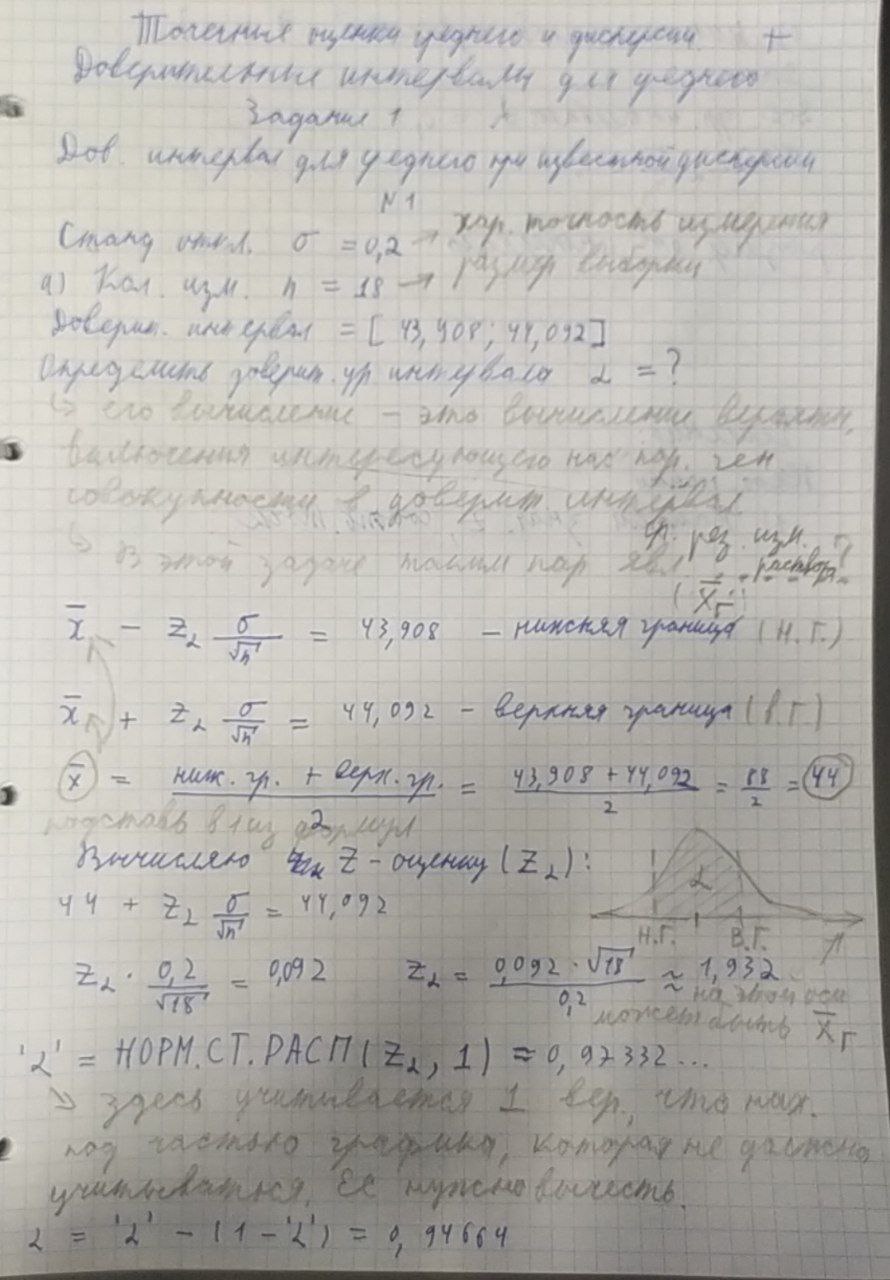 Точечные оценки среднего и дисперсии. +
Доверительные интервалы для среднего
Задание 1
Дов. интервал для среднего при известной дисперсии
№1
Станд откл. σ = 0,2 → хар. точность измерения
а) Кол. изм. n = 18 → размер выборки
Доверит. интервал = [43,908; 44,092]
Определить доверит. ур интервала α = ?
↳ его вычисление – это вычисление вероятн.
включения интересующего нас пар. ген
совокупности в доверит интервал
ср. рез. изм.
↳ В этой задаче таким пар явл. раствора
(X̄г)
x̄ − Zα σ/√n = 43,908 – нижняя граница (Н.Г.)
x̄ + Zα σ/√n = 44,092 – верхняя граница (В.Г.)
x̄ = (ниж. гр. + верх. гр.)/2 = (43,908 + 44,092)/2 = 88/2 = 44
подставь в 1 из формул
Вычисляю Z-оценку (Zα):
44 + Zα σ/√n = 44,092
α
Н.Г. В.Г.
Zα · 0,2/√18 = 0,092 Zα = (0,092 · √18)/0,2 ≈ 1,932
на этой оси
может быть X̄г
'α' = НОРМ.СТ.РАСП(Zα, 1) ≈ 0,97332...
↳ здесь учитывается 1 вер, что нах.
под частью графика, которая не должна
учитываться. Её нужно вычесть.
α = 'α' − (1 − 'α') = 0,94664